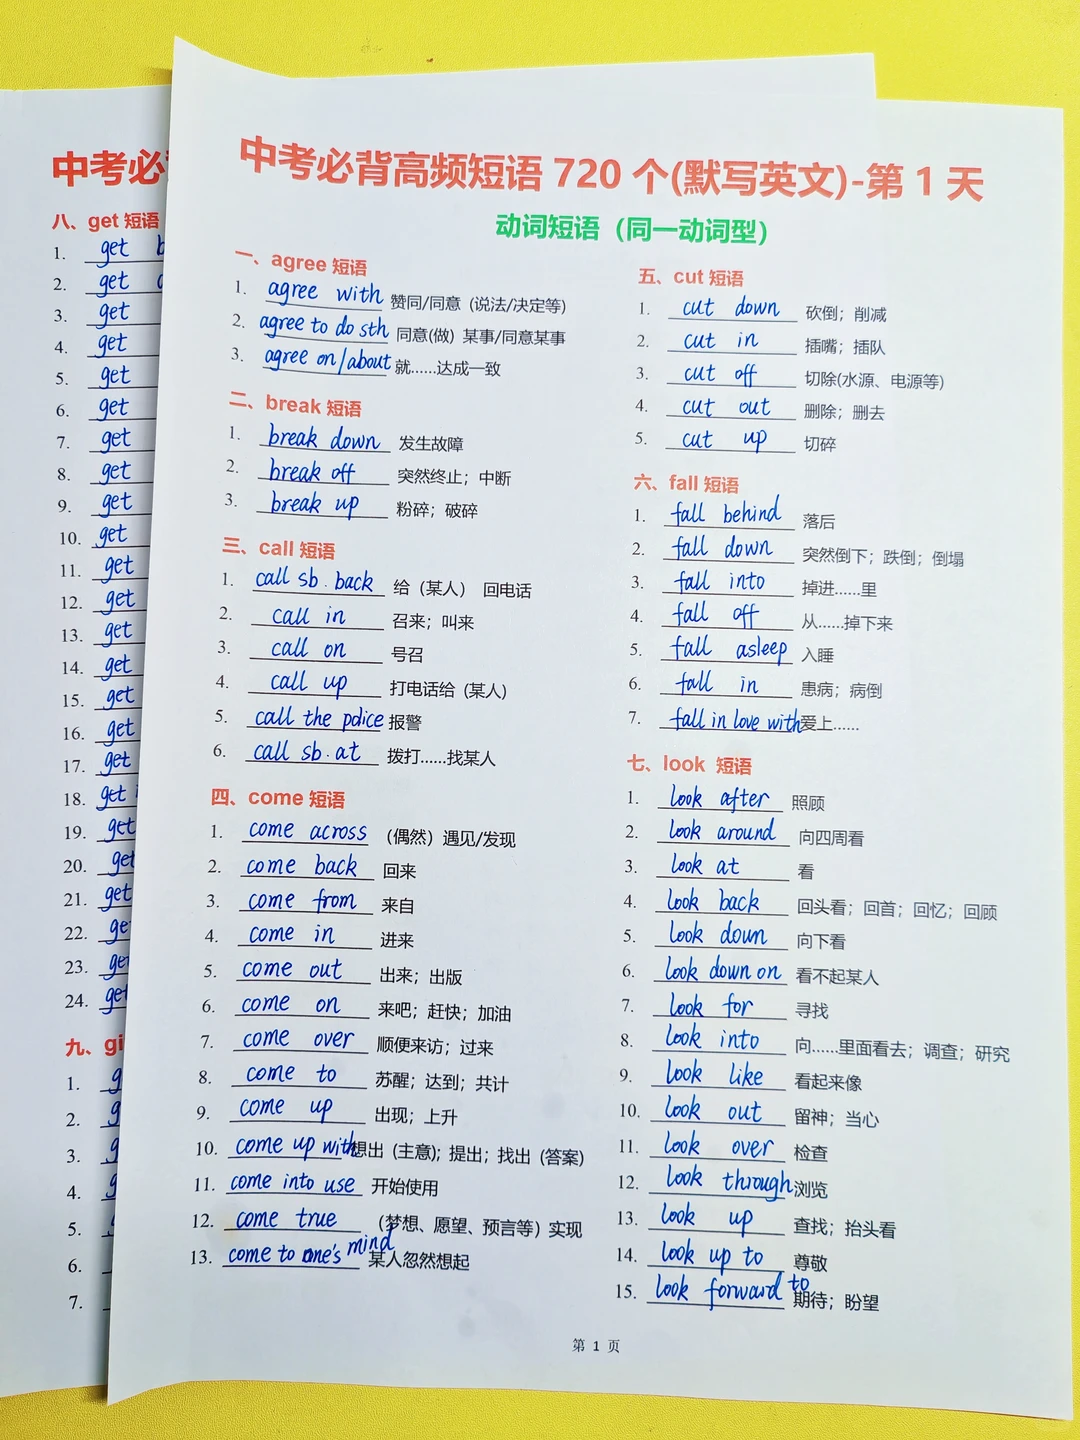 中考必背高频短语 720 个(默写英文)-第 1 天
动词短语（同一动词型）
一、agree 短语
1. agree with 赞同/同意 (说法/决定等)
2. agree to do sth 同意(做) 某事/同意某事
3. agree on/about 就……达成一致
二、break 短语
1. break down 发生故障
2. break off 突然终止；中断
3. break up 粉碎；破碎
三、call 短语
1. call sb. back 给（某人） 回电话
2. call in 召来；叫来
3. call on 号召
4. call up 打电话给 (某人)
5. call the police 报警
6. call sb. at 拨打……找某人
四、come 短语
1. come across （偶然）遇见/发现
2. come back 回来
3. come from 来自
4. come in 进来
5. come out 出来；出版
6. come on 来吧；赶快；加油
7. come over 顺便来访；过来
8. come to 苏醒；达到；共计
9. come up 出现；上升
10. come up with 想出 (主意); 提出；找出 (答案)
11. come into use 开始使用
12. come true （梦想、愿望、预言等）实现
13. come to one's mind 某人忽然想起
五、cut 短语
1. cut down 砍倒；削减
2. cut in 插嘴；插队
3. cut off 切除(水源、电源等)
4. cut out 删除；删去
5. cut up 切碎
六、fall 短语
1. fall behind 落后
2. fall down 突然倒下；跌倒；倒塌
3. fall into 掉进……里
4. fall off 从……掉下来
5. fall asleep 入睡
6. fall in 患病；病倒
7. fall in love with 爱上……
七、look 短语
1. look after 照顾
2. look around 向四周看
3. look at 看
4. look back 回头看；回首；回忆；回顾
5. look down 向下看
6. look down on 看不起某人
7. look for 寻找
8. look into 向……里面看去；调查；研究
9. look like 看起来像
10. look out 留神；当心
11. look over 检查
12. look through 浏览
13. look up 查找；抬头看
14. look up to 尊敬
15. look forward to 期待；盼望
第 1 页
中考必
八、get 短语
1. get
2. get
3. get
4. get
5. get
6. get
7. get
8. get
9. get
10. get
11. get
12. get
13. get
14. get
15. get
16. get
17. get
18. get
19. get
20. get
21. get
22.
23.
24.
九、
1.
2.
3.
4.
5.
6.
7.